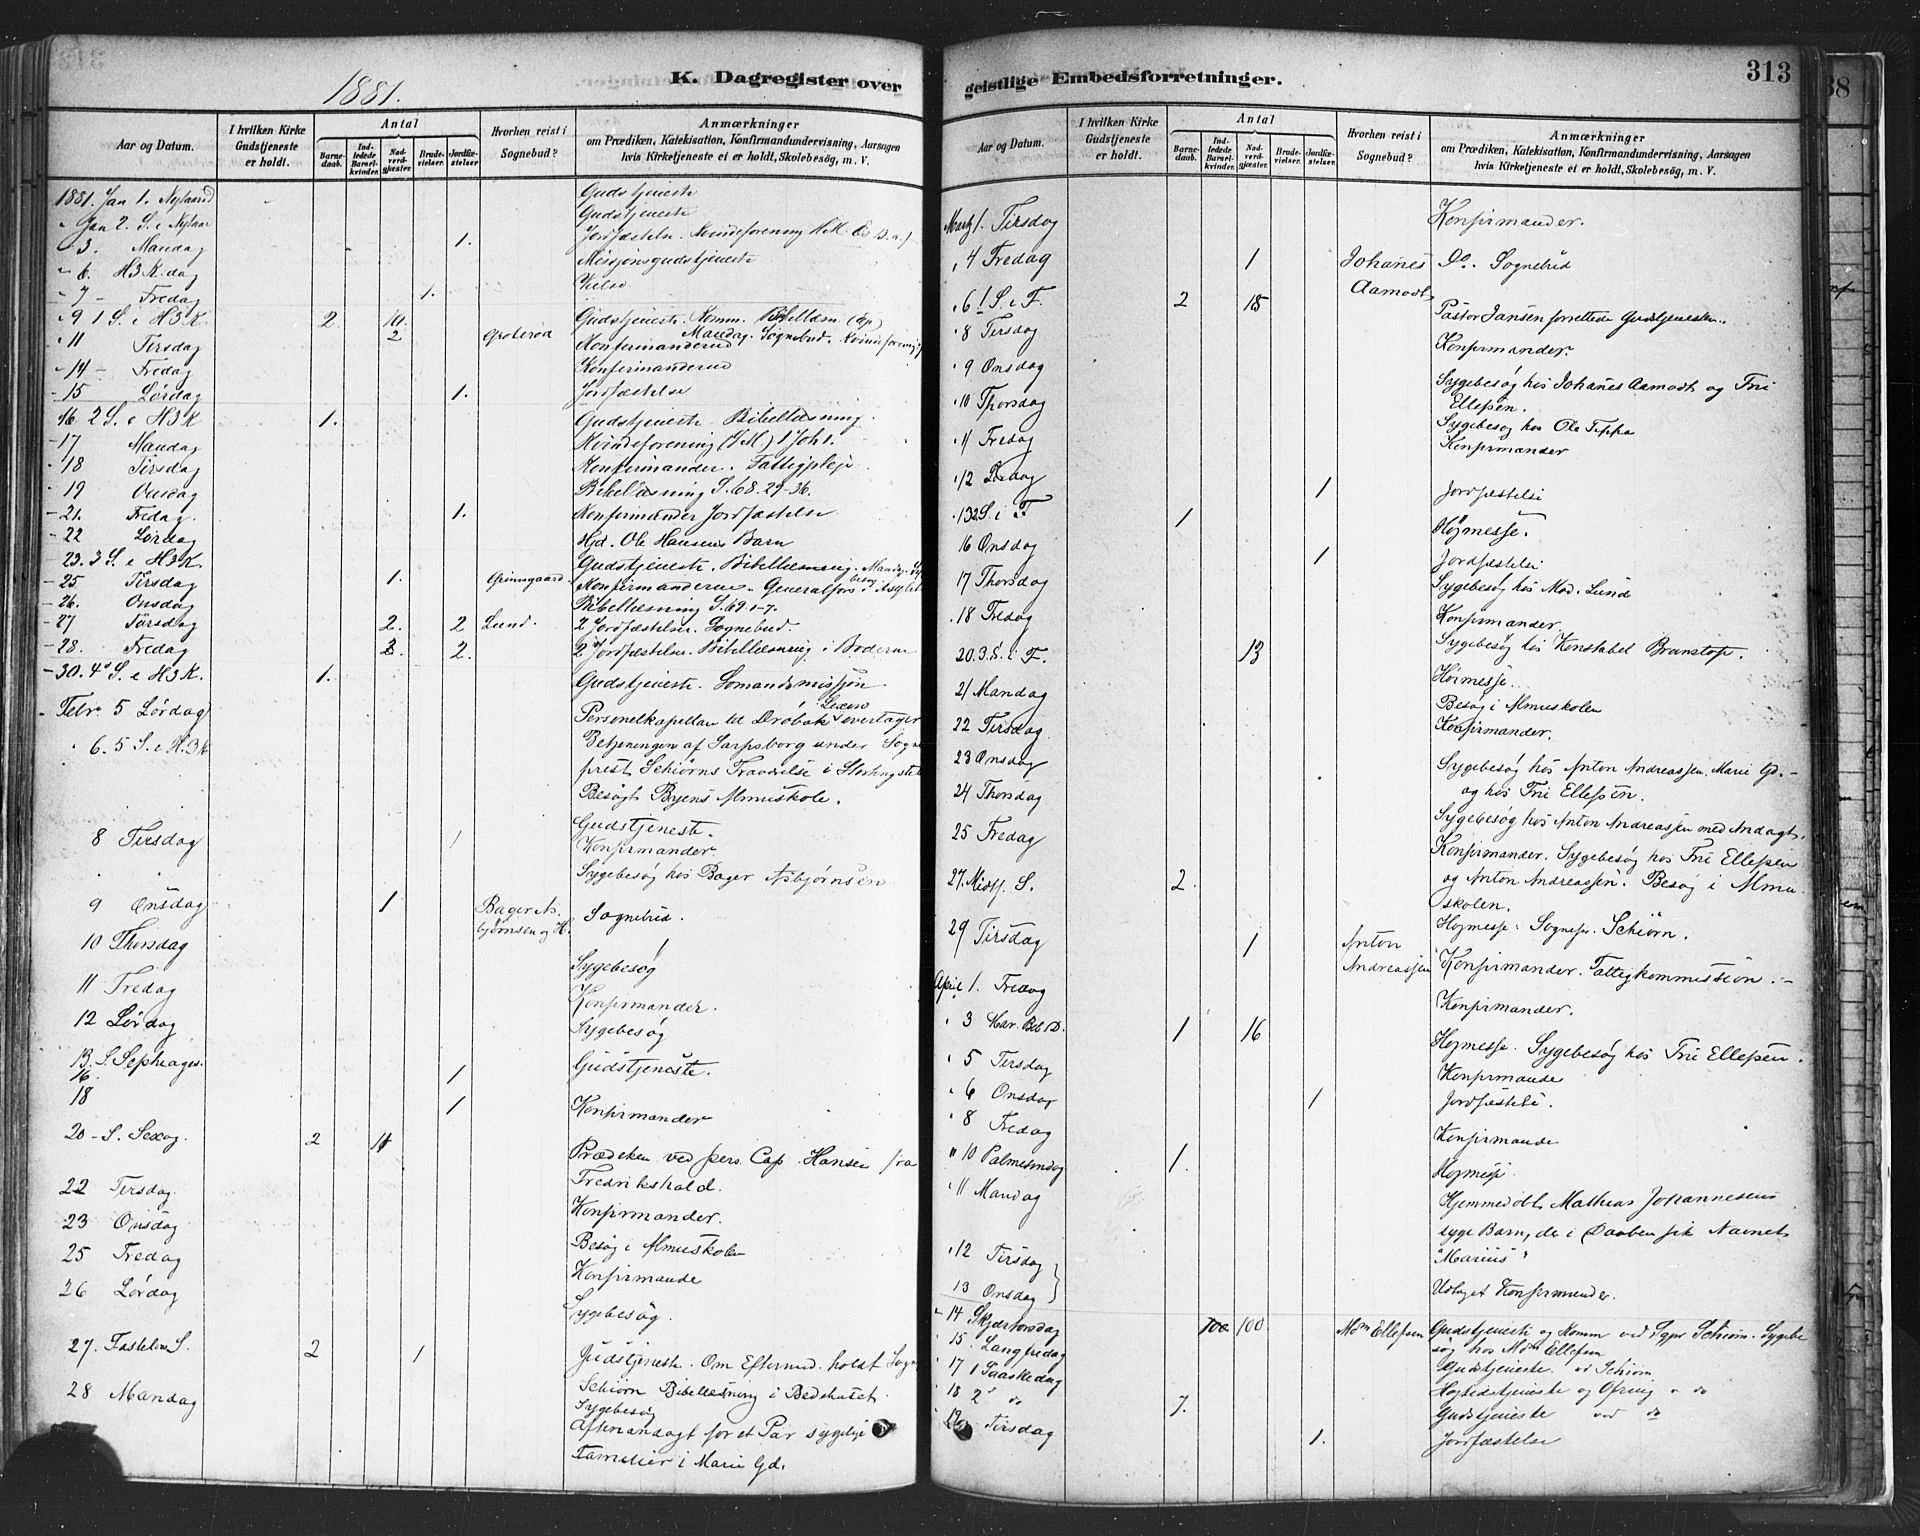 1881.
K. Dagregister over
Aar og Datum.
I hvilken Kirke Gudstjeneste er holdt.
Antal
Barnedaab.
Indledede Barselkvinder.
Nadverdgjester.
Brudevielser.
Jordfæstelser.
Hvorhen reist i Sognebud?
Anmærkninger
om Prædiken, Katekisation, Konfirmandundervisning, Aarsagen
hvis Kirketjeneste ei er holdt, Skolebesög, m. V.
1881. Jan 1. Nytaarsd Gudstjeneste
" Jan 2. S. e Nytaar Gudstjeneste
- 3. Mandag 1. Jordfæstelse. Kvindeforening
- 6. H3K.dag Missionsgudstjeneste
- 7 - Fredag 1. Vielse
- 9 1 S. e H3K 2. 10. Gudstjeneste. Komm. Bibellæsn.
Mandag. Sognebud. Kvindeforening
- 11 Tirsdag 2 Konfirmanderne
- 14 - Fredag Konfirmanderne
- 15 Lørdag 1. Jordfæstelse
- 16. 2 S. e H3K 1. Gudstjeneste. Bibellæsning.
- 17 Mandag Kvindeforening 1 Joh 1.
- 18 Tirsdag Konfirmander. Fattigpleje.
- 19 Onsdag Bibellæsning S. 68. 29-36.
- 21. Fredag. 1. Konfirmander Jordfæstelse
- 22 Lørdag Hjd. Ole Hansens Barn
23. 3 S. e H3K. Gudstjeneste. Bibellæsning.
- 25 Tirsdag 1. Grinnsgaard. Konfirmanderne. Generalfors i Asylet
- 26. Onsdag Bibellæsning S. 69. 1-7.
- 27 Torsdag 2. 2 Lund. 2 Jordfæstelser. Sognebud.
- 28. Fredag 2. 2. 2 Jordfæstelse. Bibellæsning i Boderne
- 30. 4 S. e H3K. 1. Gudstjeneste. Sømandsmission
Febr 5 Lørdag Personelkapellan til Drøbak overtager
6. 5 S. e H.3K Betjeningen af Sarpsborg under Sogne
prest Schiørns Fraværelse i Storthingstid
Besøgt Byens Almuskole.
Gudstjeneste.
8 Tirsdag 1 Konfirmander.
Sygebesøg hos Bager Asbjørnsen
9 Onsdag 1 Bager As- Sognebud.
bjørnsen og H.
10 Thorsdag Sygebesøg
11 Fredag Konfirmander.
12 Lørdag Sygebesøg
13. S. Septuages. Gudstjeneste.
16. 1
18 1 Konfirmander
20 - S. Sexag. 2 11 Prædeken ved pers. Cap. Hansen fra
Fredrikshald.
22 Tirsdag. Konfirmander.
23 Onsdag Besøg i Almuskolen
25 Fredag Konfirmande
26 Lørdag Sygebesøg.
27. Fastelavn S. 2 1 Gudstjeneste. Om Eftermid. holdt Sogne
Schiørn Bibellæsning i Bedehuset.
28 Mandag Sygebesøg
Aftenandagt for et Par sygelige
Familier i Marie Gd.
geistlige Embedsforretninger.
313
Aar og Datum.
I hvilken Kirke Gudstjeneste er holdt.
Antal
Barnedaab.
Indledede Barselkvinder.
Nadverdgjester.
Brudevielser.
Jordfæstelser.
Hvorhen reist i Sognebud?
Anmærkninger
om Prædiken, Katekisation, Konfirmandundervisning, Aarsagen
hvis Kirketjeneste ei er holdt, Skolebesög, m. V.
Marts 1. Tirsdag Konfirmander.
" 4 Fredag 1 Johanes Aamodt Do. Sognebud
" 6 1 S. i F. 2 18 Pastor Jansen forrettede Gudstjenesten.
" 8 Tirsdag Konfirmander.
" 9 Onsdag Sygebesøg hos Johanes Aamodt og Fru
Ellefsen.
" 10 Thorsdag Sygebesøg hos Ole Teppa
" 11 Fredag Konfirmander
" 12 Lørdag 1 Jordfæstelse
" 13 2 S. i F 1 Højmesse.
16 Onsdag 1 Jordfæstelse
17 Thorsdag Sygebesøg hos Mad. Lund
18 Fredag Konfirmander.
20. 3. S. i F. 13 Sygebesøg hos Konstabel Branstop.
Høimesse.
21 Mandag Besøg i Almuskolen
22 Tirsdag Konfirmander.
23 Onsdag Sygebesøg hos Anton Andreassen, Marie Gd. -
24 Thorsdag og hos Fru Ellefsen.
25 Fredag Sygebesøg hos Anton Andreassen med Andagt.
Konfirmander. Sygebesøg hos Fru Ellefsen
27. Midtf. S. 2. og Anton Andreassen. Besøg i Almu
skolen.
29 Tirsdag 1 Anton Andreassen Højmesse. Sognepr. Schiørn.
Konfirmander. Fattigkommission. -
April 1. Fredag Konfirmander.
" 3 Mar. Beb. D. 1 16 Højmesse. Sygebesøg hos Fru Ellefsen.
" 5 Tirsdag Konfirmande
" 6 Onsdag 1 Jordfæstelse.
" 8 Fredag Konfirmande
" 10 Palmesøndag 1. Højmesse.
" 11 Mandag Hjemmedøbt Mathias Johannesens
syge Barn, der i Daaben fik Navnet
"Marius"
" 12 Tirsdag
13 Onsdag Udtaget Konfirmander.
" 14 Skjærtorsdag 100 100 Mdm Ellefsen Gudstjeneste og Komm ved Sgpr Schiørn. Sygebe
søg hos Mdm Ellefsen
" 15. Langfredag Gudstjeneste v Schiørn
" 17 1 Paaskedag Højtidstjeneste og Ofring " do
" 18 2 do 7. Gudstjeneste ved do
" 19 Tirsdag 1. Jordfæstelse